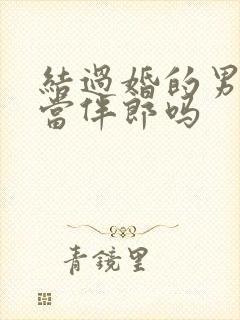 結過婚的男
當伴郎吗
青鏡里